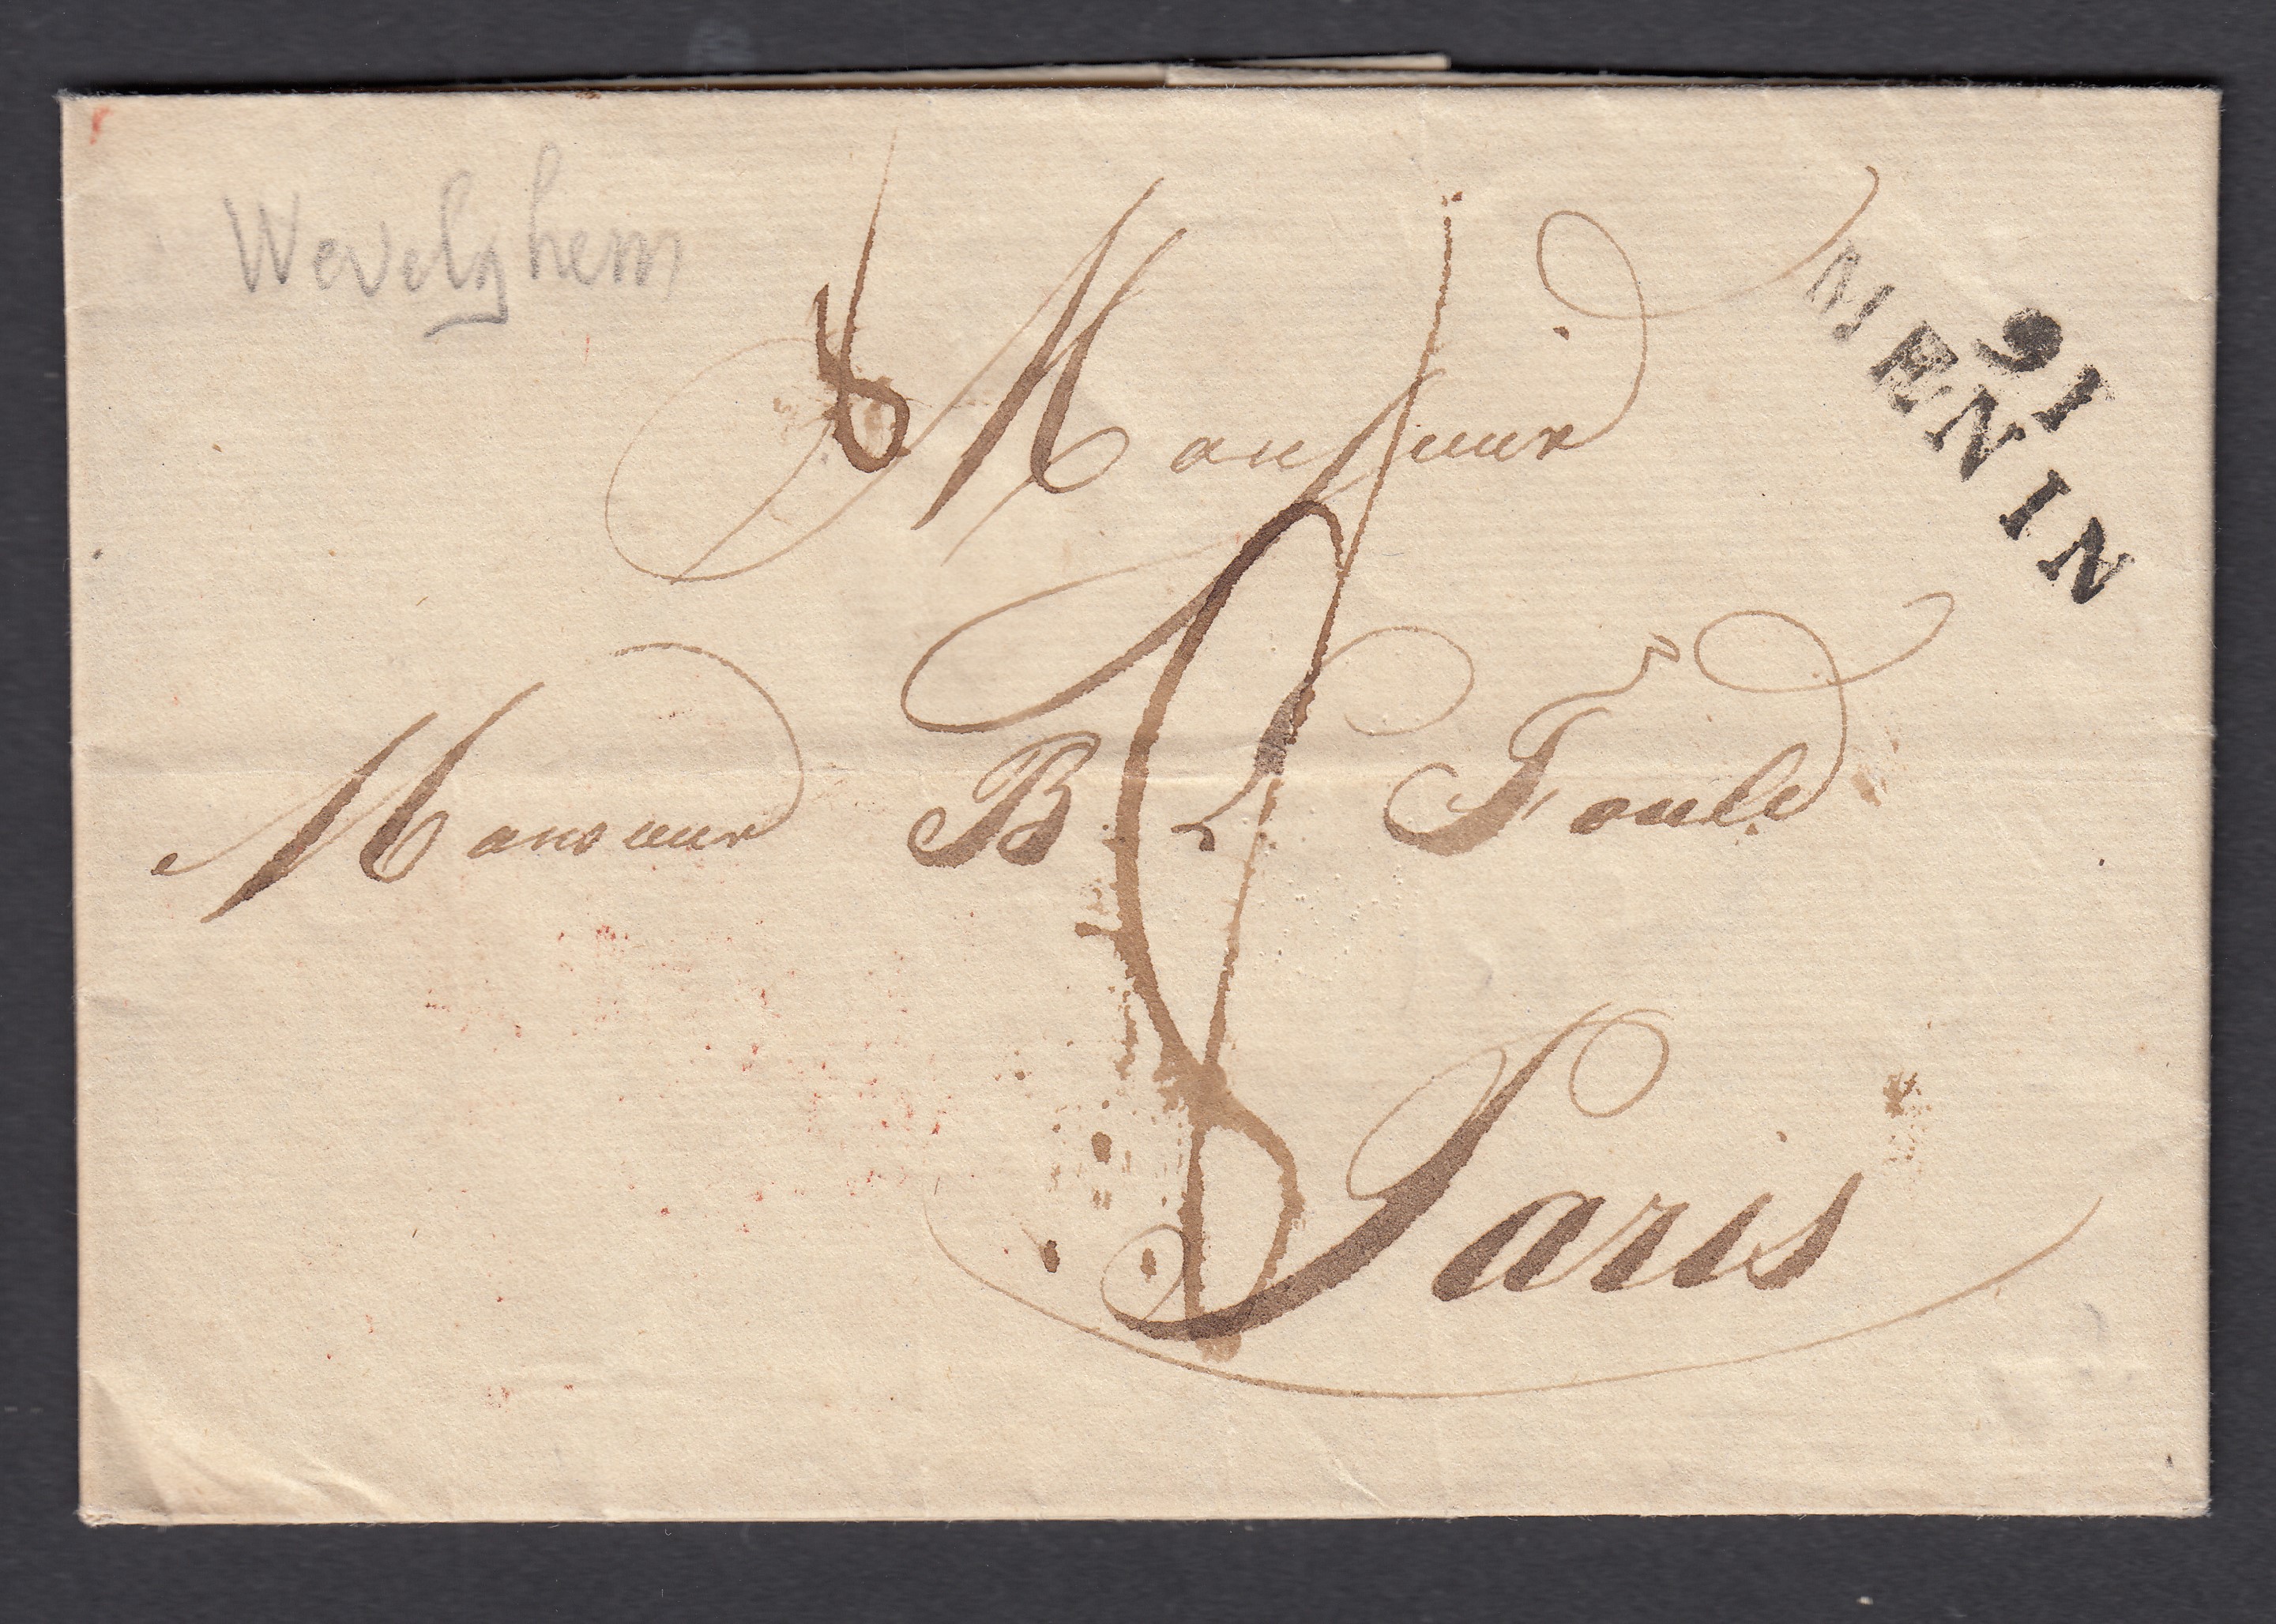 Wevelghem
91
MENIN
8
Monsieur
Monsieur B L Fould
8
Paris